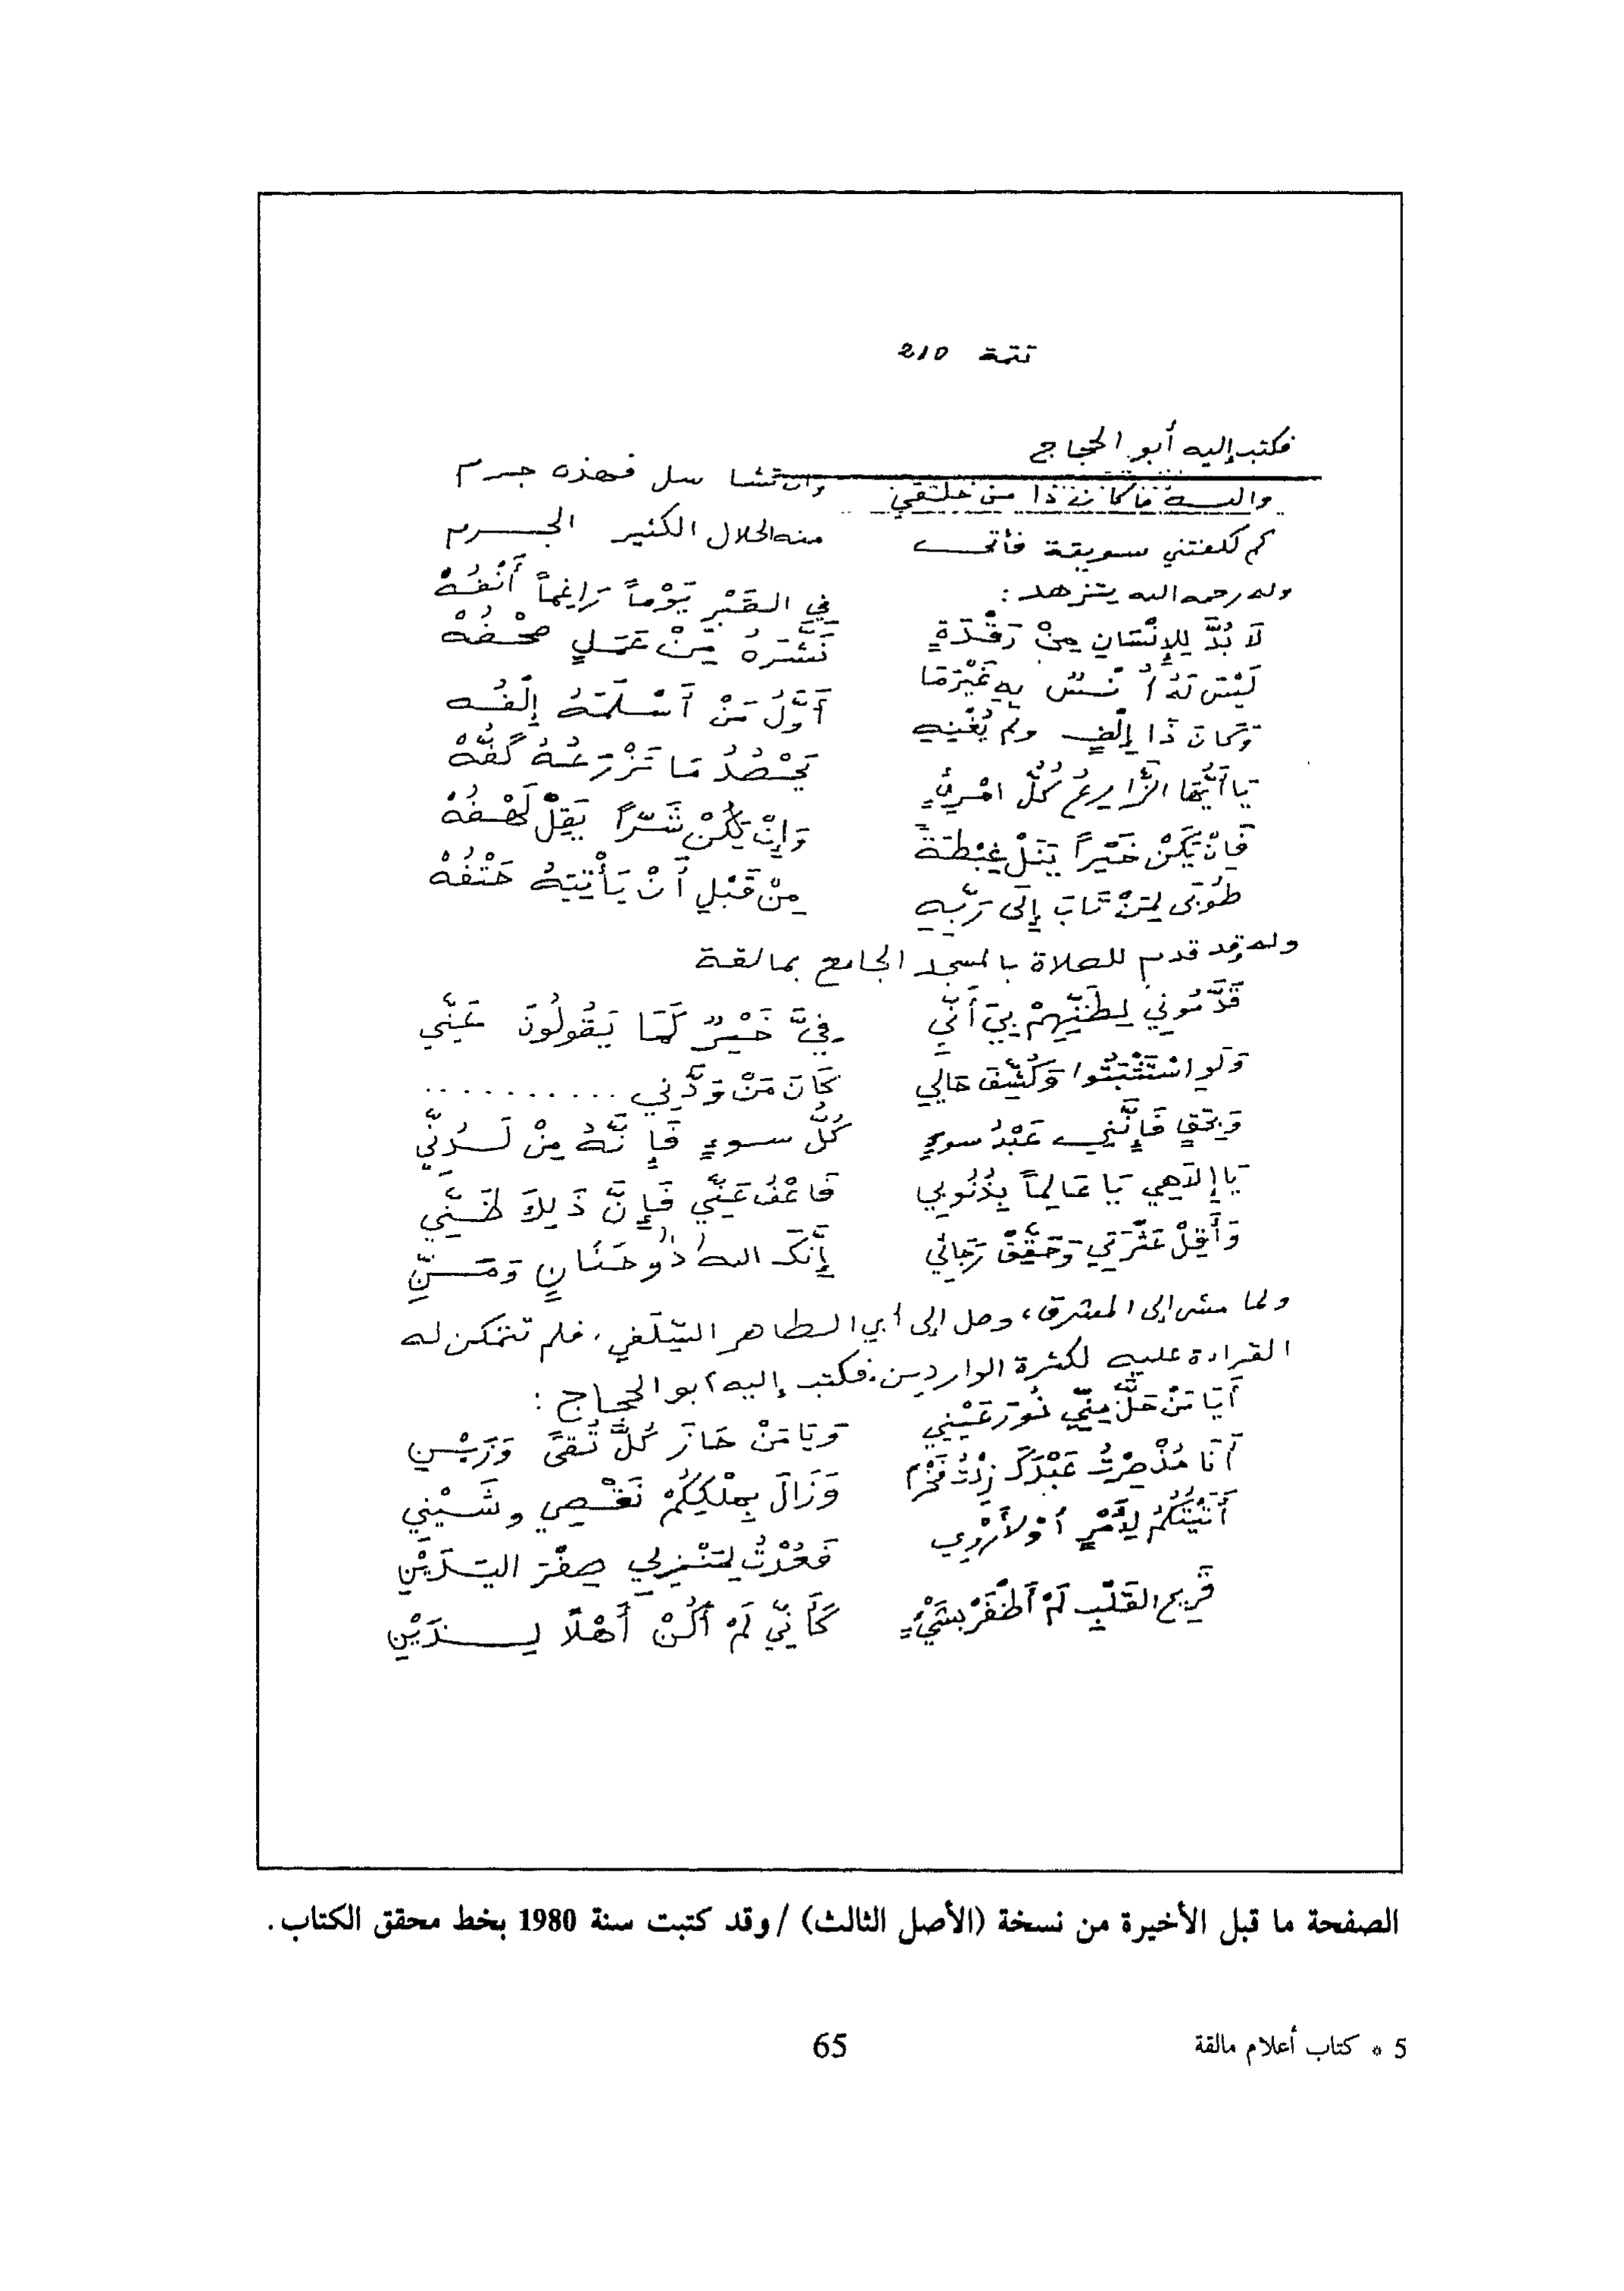 تتمة 210
فكتب إليه أبو الحجاج
والله ما كان ذا من خلقي وان تشا سل فهذه جرم
كم كلفتني سويقة فأتى منه الحلال الكثير الجرم
وله رحمه الله يتزهد :
لَا بُدَّ لِلإِنْسَانِ مِنْ رَقْدَةٍ فِي القَبْرِ يَوْماً رَاغِماً أَنْفُهْ
لَيْسَ لَهُ أُنْسٌ بِهِ غَيْرَمَا نَشَّرَهُ مِنْ عَمَلٍ صُحْفُهْ
وَكَانَ ذَا إِلْفٍ وَلَمْ يُغْنِهِ أَوَّلُ مَنْ أَسْلَمَهُ إِلْفُه
يَا أَيُّهَا الزَّارِعُ كُلُّ امْرِئٍ يَحْصُدُ مَا تَزْرَعُهُ كَفُّهْ
فَإِنْ يَكُنْ خَيْراً يَنَلْ غِبْطَةً وَإِنْ يَكُنْ شَرّاً يَقِلْ لَهْفُهْ
طُوبَى لِمَنْ تَابَ إِلَى رَبِّهِ مِنْ قَبْلِ أَنْ يَأْتِيَهُ حَتْفُهْ
وله وقد قدم للصلاة بالمسجد الجامع بمالقة
قَدَّمُونِي لِظَنِّهِمْ بِيَ أَنِّي فِيَّ خَيْرٌ كَمَا يَقُولُونَ عَنِّي
وَلَوِ اسْتَثْبَتُوا وَكُشِّفَ حَالِي كَانَ مَنْ وَدَّنِي ..........
وَبِحَقٍ فَإِنَّنِي عَبْدُ سوءٍ كُلُّ سوءٍ فَإِنَّهُ مِنْ لَدُنِّي
يَا إِلَاهِي يَا عَالِماً بِذُنُوبِي فَاعْفُ عَنِّي فَإِنَّ ذَلِكَ ظَنِّي
وَأَقِلْ عَثْرَتِي وَحَقِّقْ رَجَائي إِنَّكَ اللهُ ذُو حَنَانٍ وَمَنِّ
ولما مشى إلى المشرق، وصل إلى أبي الطاهر السِّلَفي، فلم تتمكن له
القراءة عليه لكثرة الواردين، فكتب إليه أبو الحجاج :
أَيَا مَنْ حَلَّ مِنِّي نُورَ عَيْنِي وَيَا مَنْ حَازَ كُلَّ تُقىً وَزَيْنِ
أَنَا مُذْ صِرْتُ عَبْدَكَ زِدْتُ فَخْراً وَزَالَ بِمِلْكِكُمْ نَقْصِي وشَيْنِي
أَتَيْتُكُمُ لِأَمْرٍ أَوْ لأَرْوِي فَعُدْتُ لِمَنْزِلِي صِفْرَ اليَدَيْنِ
قَرِيحَ القَلْبِ لَمْ أَظْفَرْ بِشَيْءٍ كَأَنِّي لَمْ أَكُنْ أَهْلاً لِذَيْنِ
الصفحة ما قبل الأخيرة من نسخة (الأصل الثالث) / وقد كتبت سنة 1980 بخط محقق الكتاب.
5 * كتاب أعلام مالقة
65